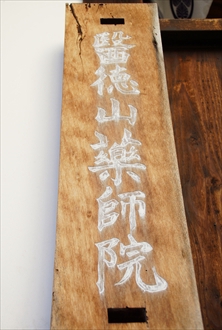 醫徳山藥師院